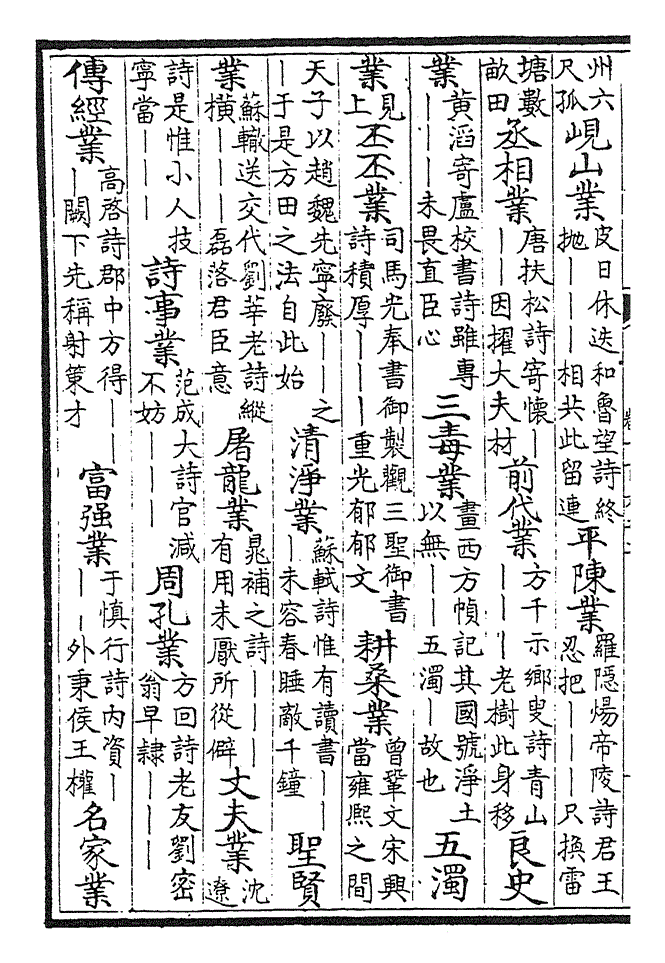 州六尺孤峴山業皮日休迭和魯望詩終拋｜｜｜相共此留連平陳業羅隱煬帝陵詩君王忍把｜｜｜尺換雷
塘數畝田丞相業唐扶松詩寄懷｜｜｜因擢大夫材前代業方千示鄉叟詩青山｜｜｜老樹此身移良史
業黃滔寄盧校書詩雖專｜｜｜未畏直臣心三毒業畫西方幀記其國號淨土以無｜｜五濁｜故也五濁
業見上丕丕業司馬光奉書御製觀三聖御書詩積厚｜｜｜重光郁郁文耕桑業曾鞏文宋興當雍熙之間
天子以趙魏先寧廢｜｜｜之｜于是方田之法自此始清淨業蘇軾詩惟有讀書｜｜｜未容春睡敵千鐘聖賢
業蘇轍送交代劉莘老詩縱橫｜｜｜磊落君臣意屠龍業晁補之詩｜｜｜有用未厭所從僻丈夫業沈遼
詩是惟小人技寧當｜｜｜詩事業范成大詩官減不妨｜｜｜周孔業方回詩老友劉密翁早隸｜｜｜
傳經業高啓詩郡中方得｜｜｜闕下先稱射策才富强業于慎行詩內資｜｜｜外秉侯王權名家業